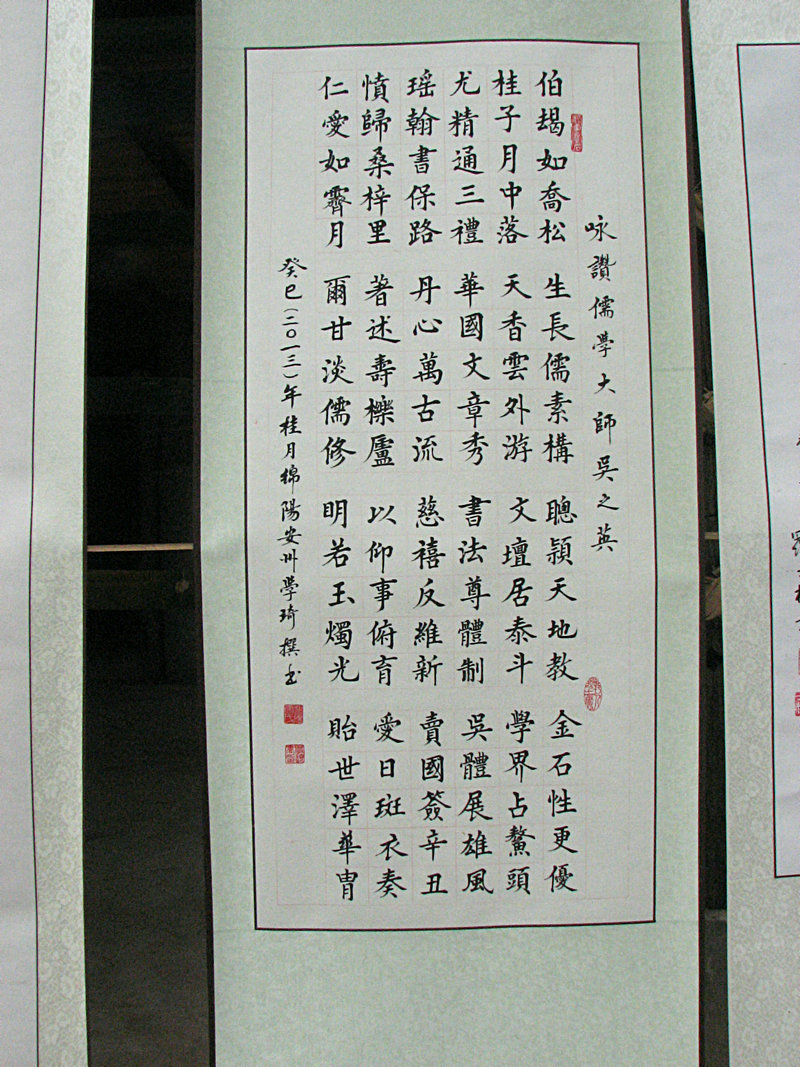 咏讚儒學大師吳之英
伯朅如喬松 生長儒素構 聰穎天地教 金石性更優
桂子月中落 天香雲外游 文壇居泰斗 學界占鰲頭
尤精通三禮 華國文章秀 書法尊體制 吳體展雄風
瑶翰書保路 丹心萬古流 慈禧反維新 賣國簽辛丑
憤歸桑梓里 著述壽櫟廬 以仰事俯育 愛日斑衣奏
仁愛如霽月 爾甘淡儒修 明若玉燭光 貽世澤華胄
癸巳(二〇一三)年桂月綿陽安州學琦撰书